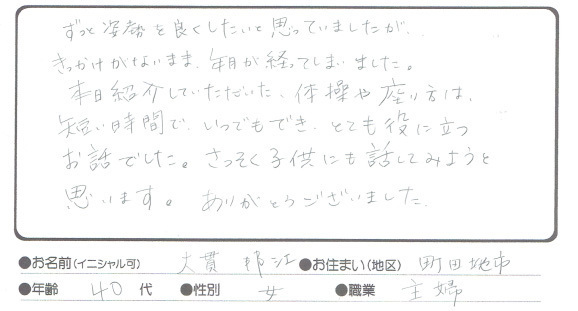 ずっと姿勢を良くしたいと思っていましたが、
きっかけがないまま、年月が経ってしまいました。
本日紹介していただいた、体操や座り方は、
短い時間で、いつでもでき、とても役に立つ
お話でした。さっそく子供にも話してみようと
思います。ありがとうございました。
●お名前(イニシャル可) 大貫 江 ●お住まい(地区) 町田市
●年齢 40 代 ●性別 女 ●職業 主婦